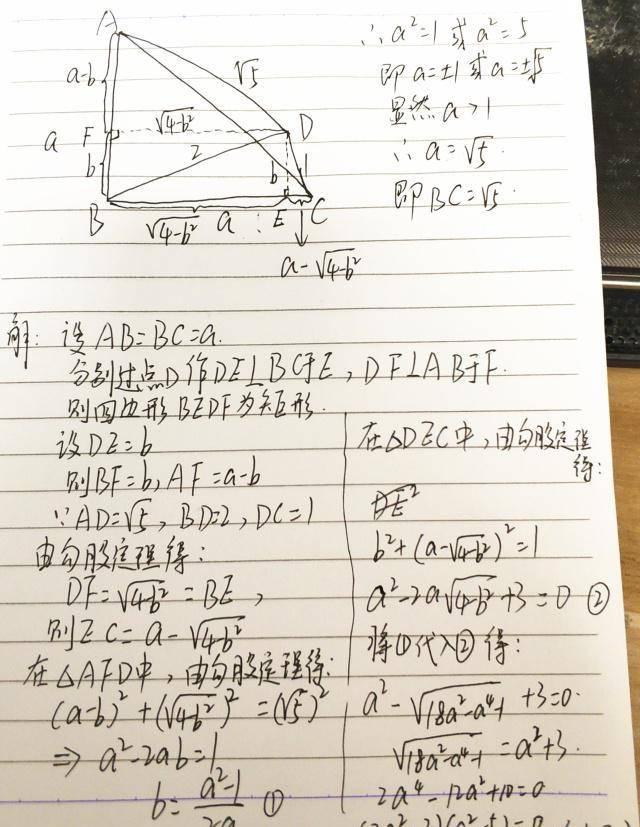 A
a-b
√5
√4-b²
F
D
a
2
b
b
1
B
√4-b²
a
E
C
a-√4-b²
∴a²=1 或 a²=5
即 a=±1 或 a=±√5
显然 a>1
∴ a=√5.
即 BC=√5.
解: 设 AB=BC=a.
分别过点D作DE⊥BC于E, DF⊥AB于F.
则四边形 BEDF为矩形.
设DE=b
则BF=b, AF=a-b
∵AD=√5, BD=2, DC=1
由勾股定理得:
DF=√4-b²=BE,
则EC=a-√4-b²
在△AFD中, 由勾股定理得:
(a-b)²+(√4-b²)²=(√5)²
⇒ a²-2ab=1
b=a²-1/2a ①
在△DEC中, 由勾股定理
得:
b²+(a-√4-b²)²=1
a²-2a√4-b²+3=0 ②
将①代入②得:
a²-√18a²-a⁴-1+3=0.
√18a²-a⁴-1=a²+3.
2a⁴-12a²+10=0